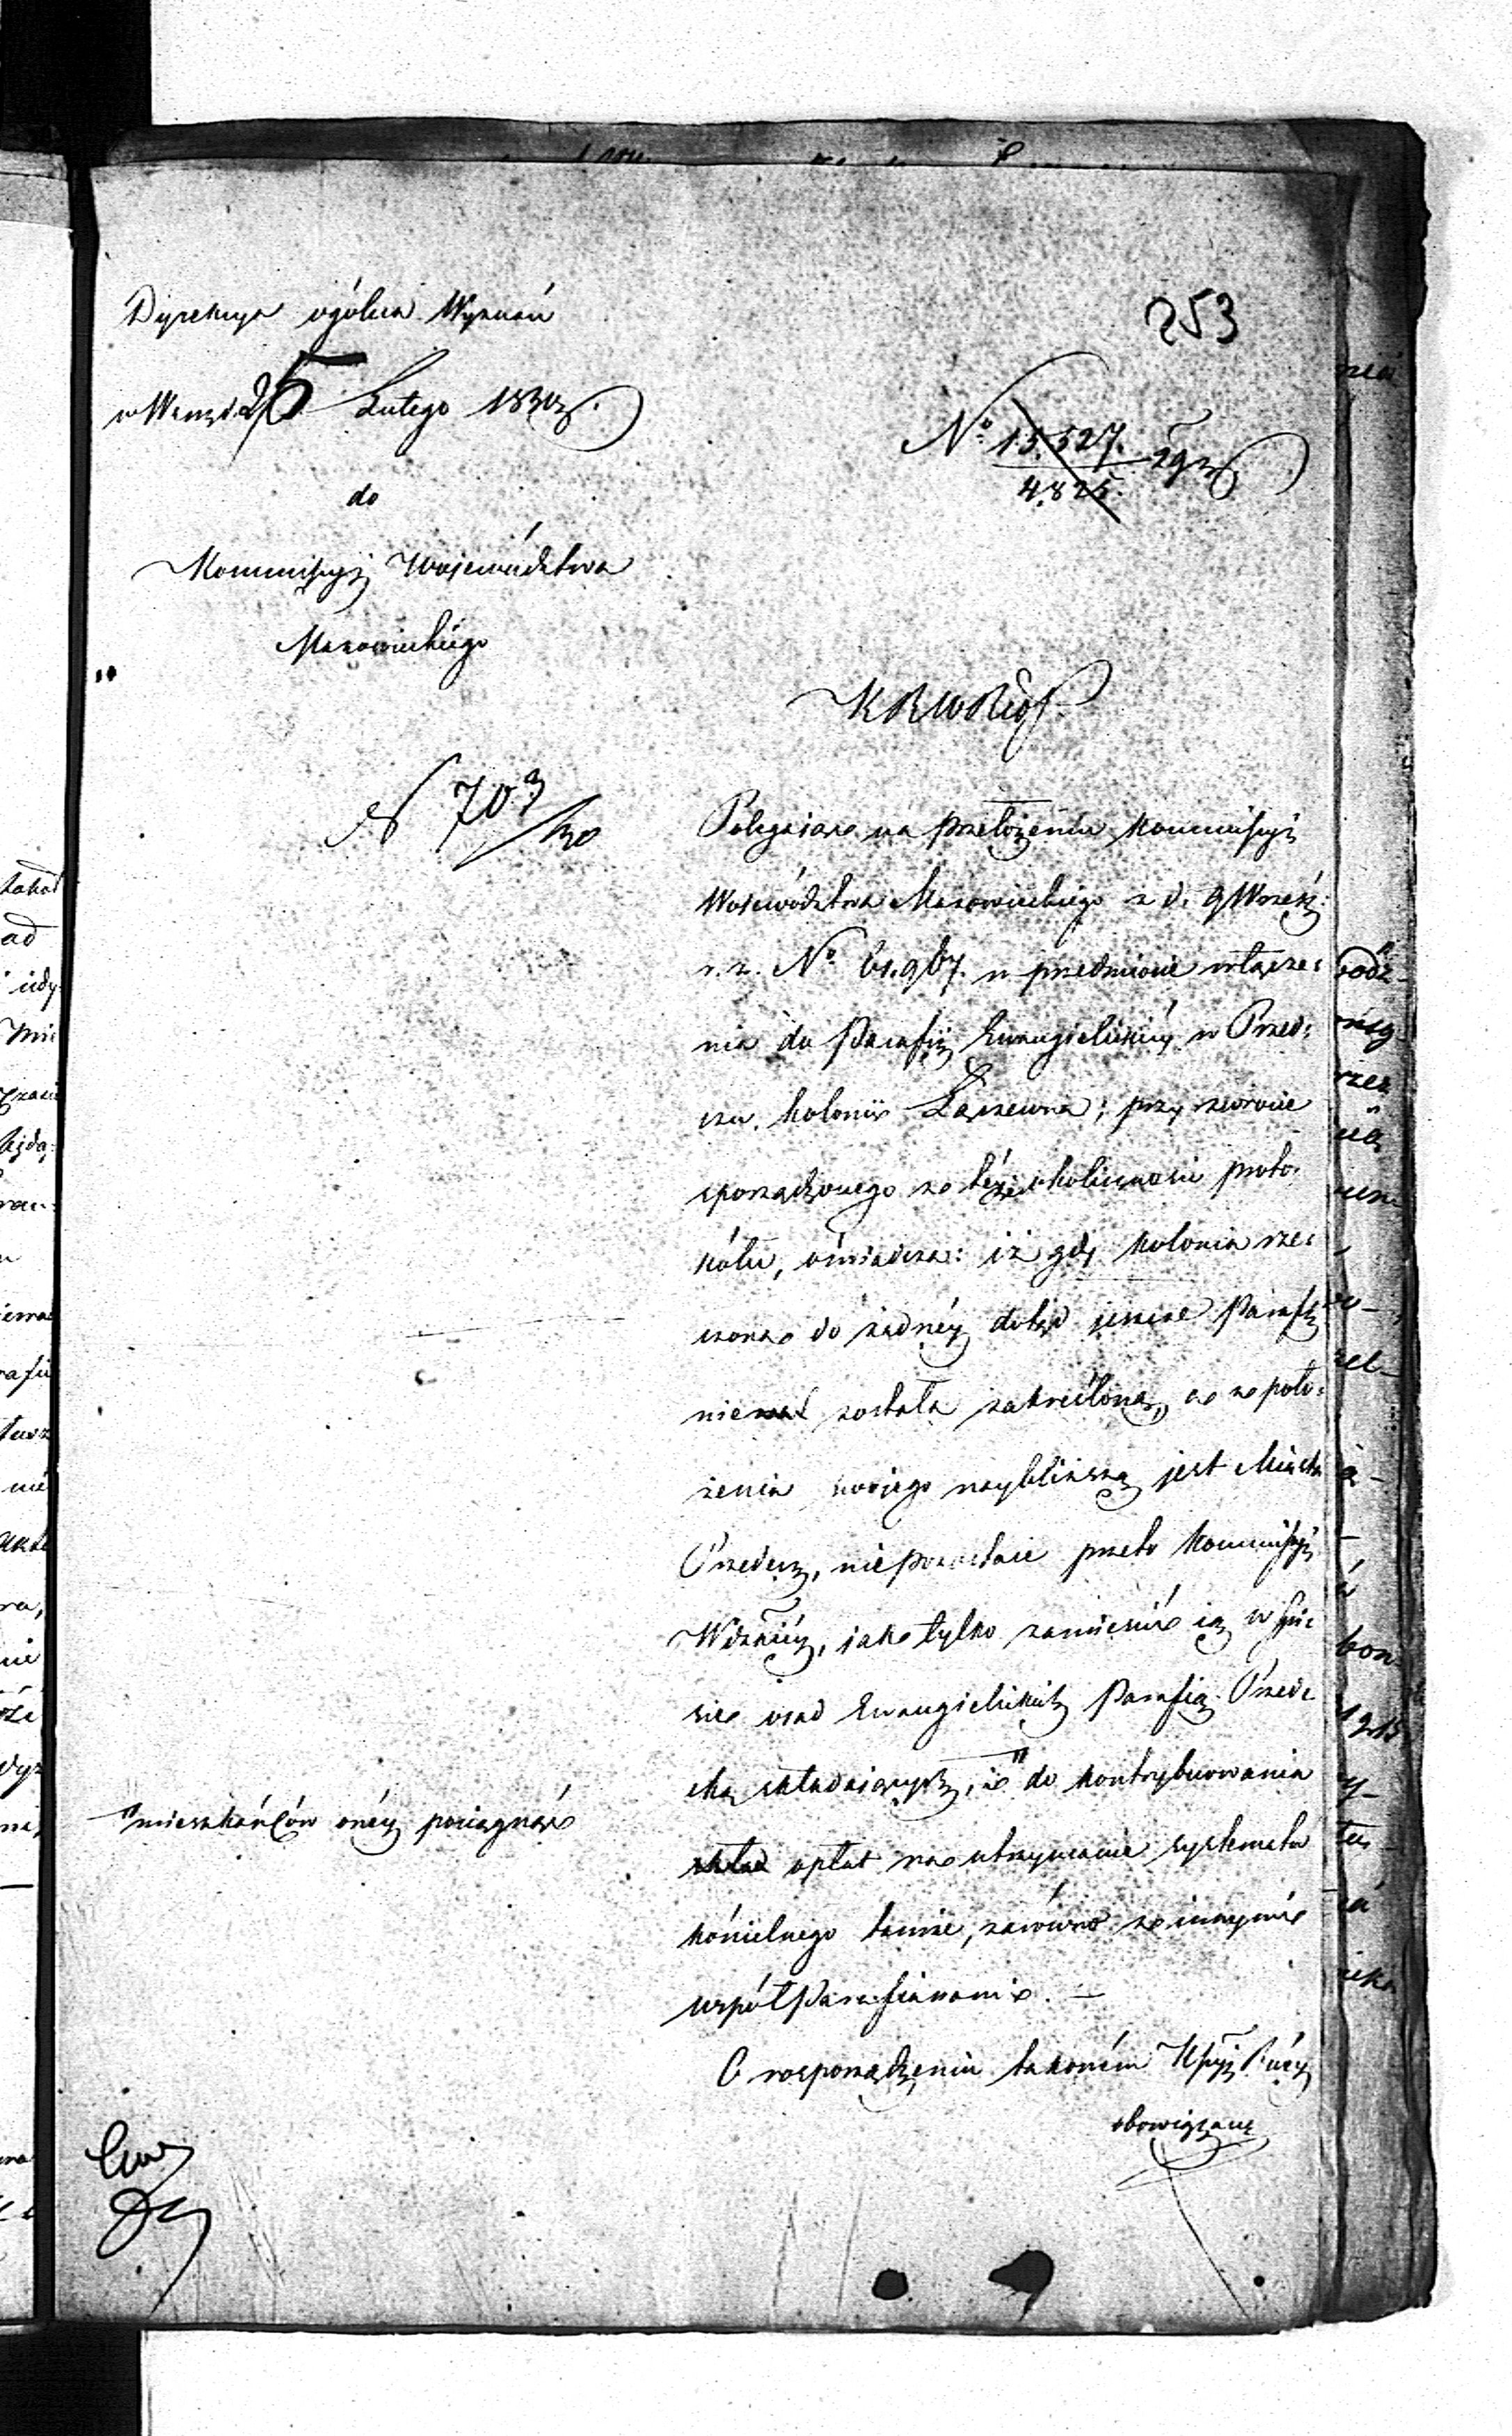 253
Dyrekcya ogólna Wyznań
w Warsz. d. 25 Lutego 1830 r.
do
Kommissyi Województwa
Mazowieckiego
No 15.527. / 4.825. 29 r.
KRWRiOP
N 703/30
Polegaiąc na przełożeniu Kommissyi
Województwa Mazowieckiego z d. 9 Wrześ:
r. z. No 61.967. w przedmiocie włącze:
nia do Parafii Ewangielickiéy w Przed:
czu kolonii Łączewna; przy zwrocie
sporządzonego w téy okoliczności proto:
kółu, oświadcza: iż gdy kolonia rze:
czona do żadnéy dotąd jeszcze Parafii
nie została zakreśloną, a z poło:
żenia swojego naybliższą jest Miasta
Przedecz, niepozostaie przeto Kommissyi
Wdzkiéy, jak tylko zamieścić ią w spi:
sie osad Ewangielickich Parafią Przede:
cką składaiących, i " do kontrybuowania
opłat na utrzymanie systematu
kościelnego tamże, zarówno z innymi
współParafianami. —
" mieszkańców onéy pociągnąć
O rozporządzeniu takowém Kssyi Rząd
obowiązany